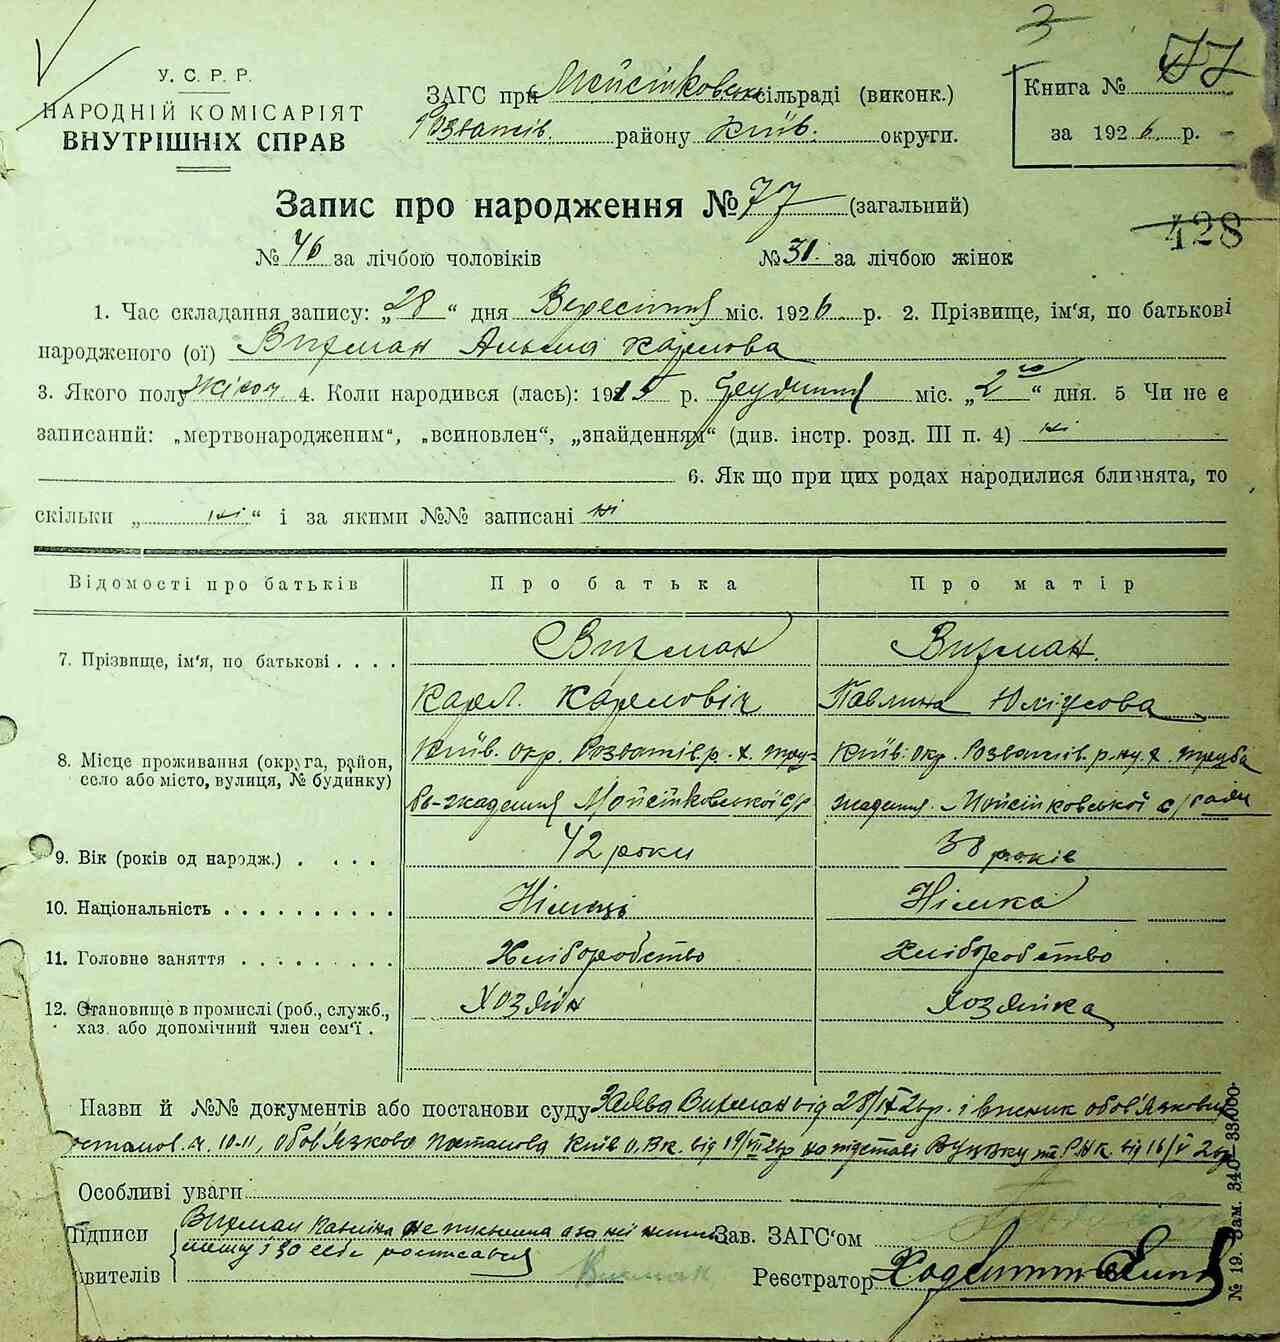 3
У. С. Р. Р.
НАРОДНІЙ КОМІСАРІЯТ
ВНУТРІШНІХ СПРАВ
ЗАГС при сільраді (виконк.)
Розватів. району Київ. округи.
Книга № 77
за 1926 р.
Запис про народження № 77 (загальний)
428
№ 46 за лічбою чоловіків № 31. за лічбою жінок
1. Час складання запису: „28“ дня Вересня міс. 1926 р. 2. Прізвище, ім'я, по батькові
народженого (ої) Вирман Альма Карлова
3. Якого полу жіноч. 4. Коли народився (лась): 1915 р. Грудня міс. „2го“ дня. 5 Чи не є
записаний: „мертвонародженим“, „всиновлен“, „знайденням“ (див. інстр. розд. III п. 4) ні
6. Як що при цих родах народилися близнята, то
скільки „ ні “ і за якими №№ записані ні
Відомості про батьків Про батька Про матір
7. Прізвище, ім'я, по батькові . . . . Вирман Вирман.
Карл. Карлович Павлина Юліусова
8. Місце проживання (округа, район, село або місто, вулиця, № будинку) Київ. окр. Розватів. р. х. Тру- Київ. окр. Розватів. р-ну х. Труба
Мойсійковської с/р Мойсійковської с/ради
9. Вік (років од народж.) . . . . 42 роки 38 років
10. Національність . . . . . . . . . . Німець Німка
11. Головне заняття . . . . . . . . . Хліборобство Хліборобство
12. Становище в промислі (роб., служб., Хозяїн Хозяйка
хаз. або допомічний член сем'ї .
Назви й №№ документів або постанови суду Заява Вирман від 28/IX 26р. і обов'язкови
постанов. ч. 10-11, Обов'язкова Постанова Київ О.В.К. від 19/VII 26р на підставі ВУЦВКу та РНК. від 16/V 26р
Особливі уваги
Підписи Вирман Павліна не письмена а за неї
і за себе росписався Зав. ЗАГС'ом
явителів Вирман Реєстратор
№ 19. Зам. 340—33.000.